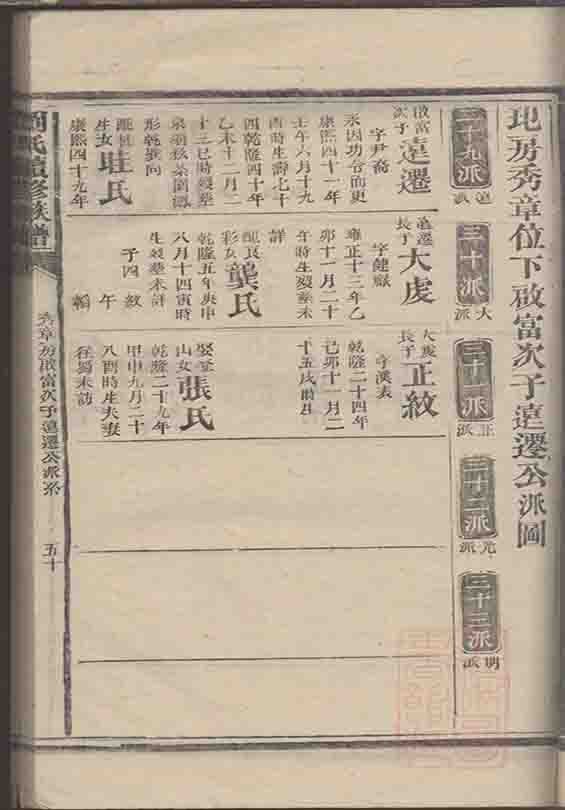 地房秀章位下啟富次子遠遷公派圖
二十九派
遠派
三十派
大派
三十一派
正派
三十二派
光派
三十三派
明派
啟富
次子
遠遷
字尹裔
永因功合而更
康熙四十一年
壬午六月十九
酉時生壽七十
四乾隆四十年
乙未十一月二
十三巳時歿葬
形乾巽向
生女
康熙四十九年
遠遷
長子
大虔
字健嶽
雍正十三年乙
卯十一月二十
午時生歿葬未
詳
彩女
龔氏
乾隆五年庚申
八月十四寅時
生歿葬未詳
子四 紋
午
大虔
長子
正紋
字漢表
乾隆二十四年
己卯十一月二
十五戌時生
娶
山女
張氏
乾隆二十九年
甲申九月二十
八酉時生夫妻
往蜀未訪
氏續修族譜
秀章房啟富次子遠遷公派系
五十